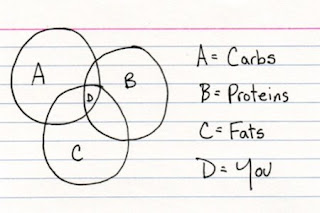 A
B
D
C
A = Carbs
B = Proteins
C = Fats
D = You